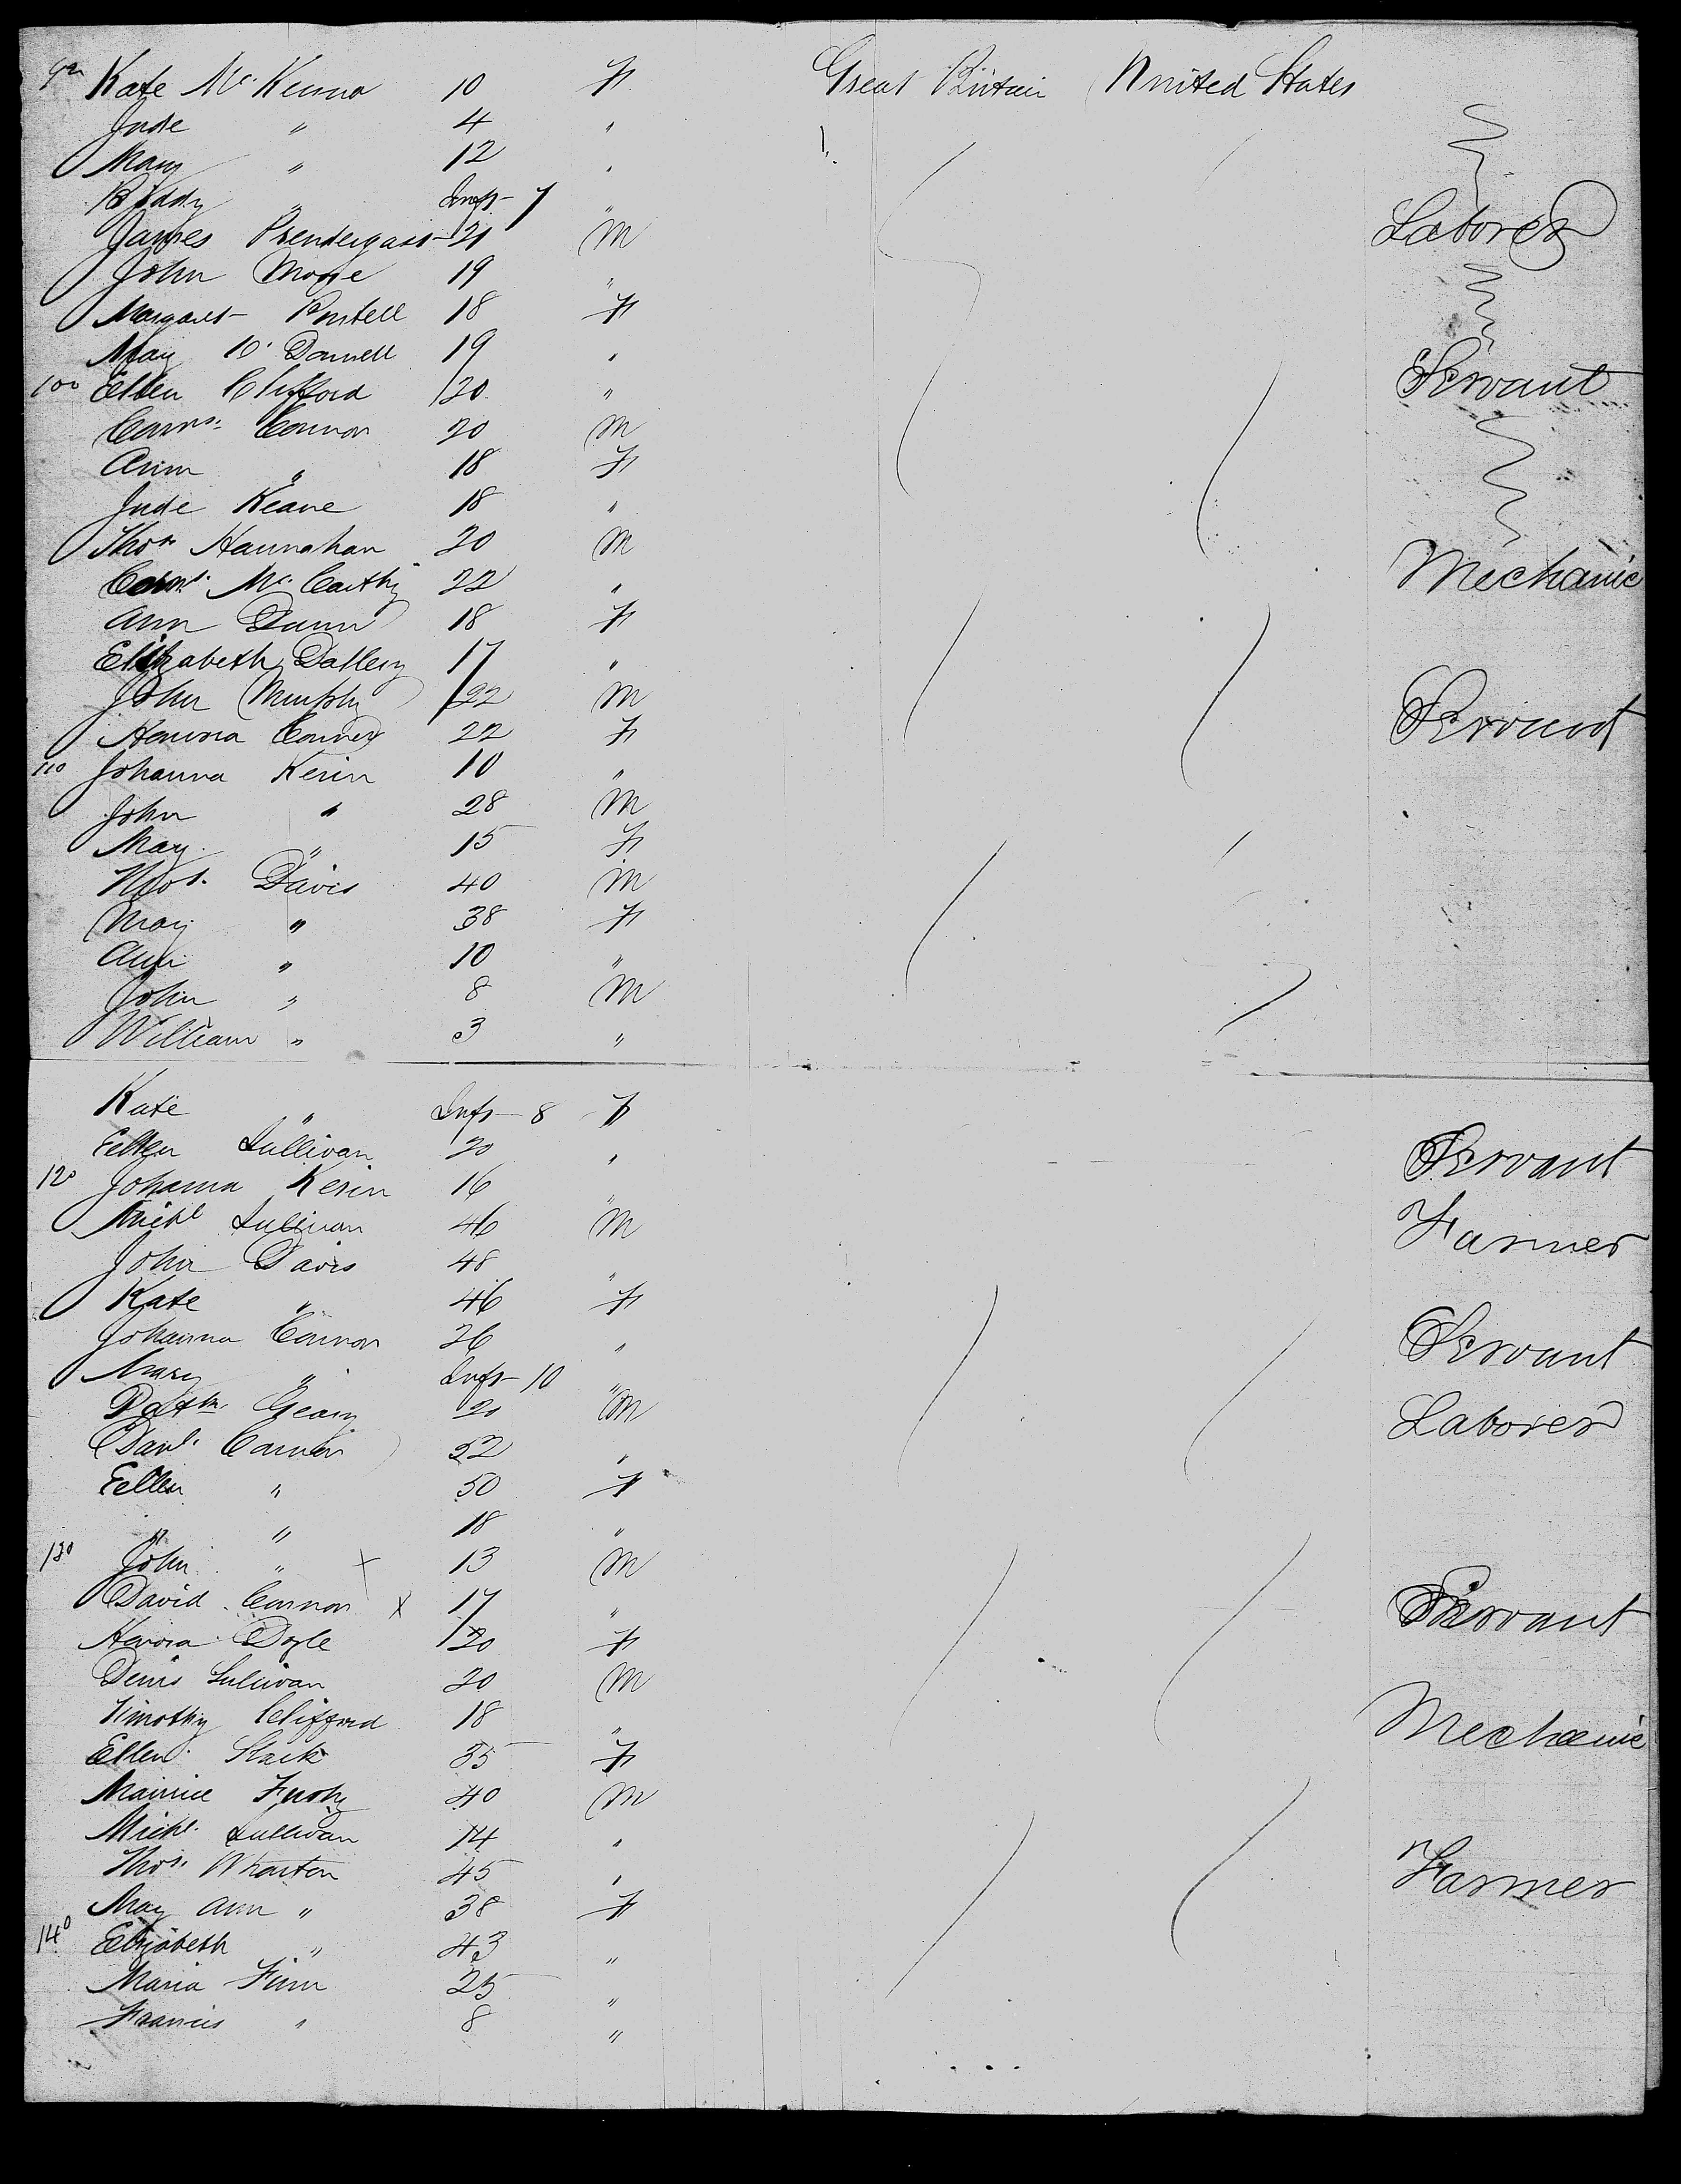 92 Kate Mc Kenna 10 F Great Britain United States
Jude " 4 "
Mary " 12 "
Biddy " Inft 7 "
James Prendergast 21 M Laborer
John Moore 19 "
Margaret 18 F
May O' Donnell 19 "
100 Ellen Clifford 20 " Servant
Corns. Connor 20 M
Ann " 18 F
Jude Keane 18 "
Thos Hannahan 20 M
Corns. Mc Carthy 22 " Mechanic
Ann Dunn 18 F
Elizabeth 17 "
John Murphy 22 M Servant
Honora Connor 22 F
110 Johanna Kerin 10 "
John " 28 M
May " 15 F
Thos. Davis 40 M
May " 38 F
Ann " 10 "
John " 8 M
William " 3 "
Kate " Inft 8 F
Ellen Sullivan 20 " Servant
120 Johanna Kerin 16 "
Michl Sullivan 46 M Farmer
John Davis 48 "
Kate " 46 F
Johanna Connor 26 " Servant
Mary " Inft 10 "
Geary 20 M Laborer
Danl. Connor 52 "
Ellen " 50 F
" " 18 "
130 John " x 13 M
David Connor x 17 " Servant
Honora Doyle 20 F
Denis Sullivan 20 M
Timothy Clifford 18 " Mechanic
Ellen Stack 35 F
Maurice 40 M
Michl. Sullivan 14 "
Thos. Wharton 45 " Farmer
May Ann " 38 F
140 Elizabeth " 43 "
Maria Finn 25 "
Francis " 8 "